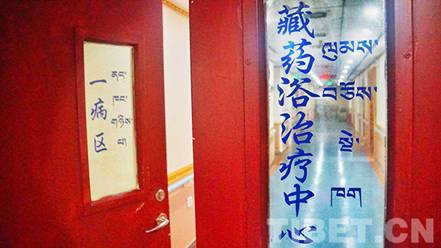 一病区
藏药浴治疗中心
ལུམས་
བཅོས་
སྡེ་
ཁག
TIBET.CN